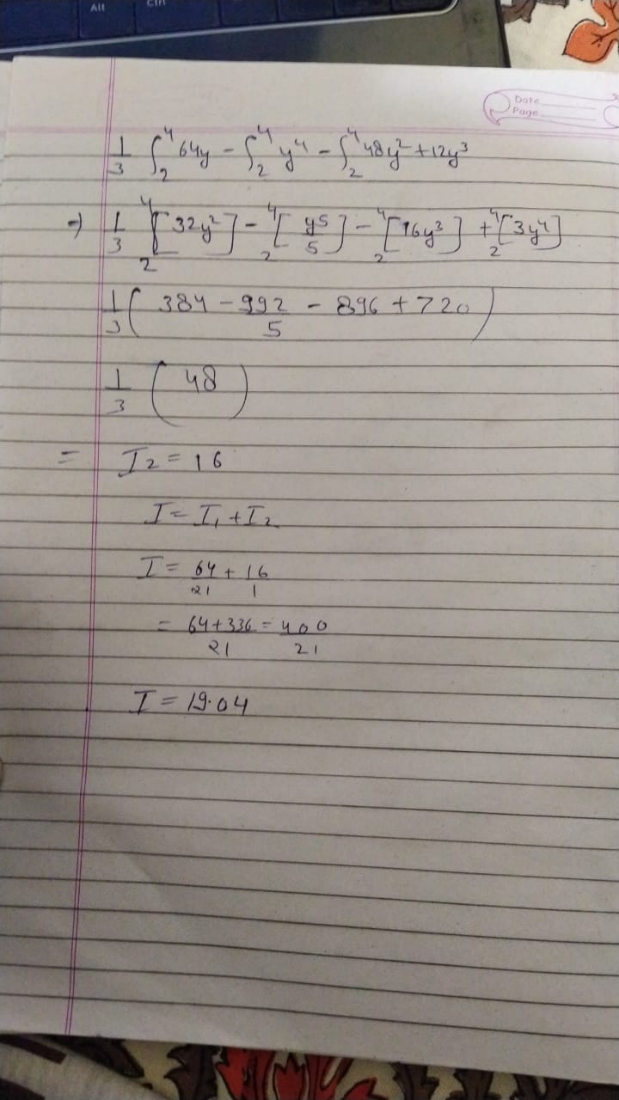 Alt Ctrl
Date
Page
1/3 ∫₂⁴ 64y - ∫₂⁴ y⁴ - ∫₂⁴ 48y² + 12y³
⇒ 1/3 ₂⁴[32y²] - ₂⁴[y⁵/5] - ₂⁴[16y³] + ₂⁴[3y⁴]
1/3 (384 - 992/5 - 896 + 720)
1/3 (48)
= I₂ = 16
I = I₁ + I₂
I = 64/21 + 16/1
= 64+336/21 = 400/21
I = 19.04